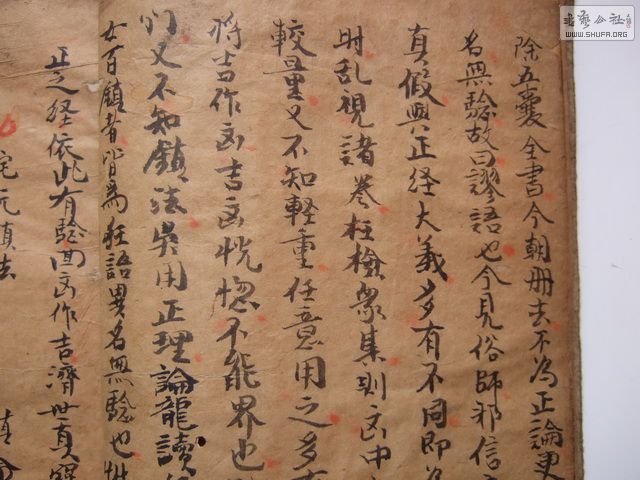 除五囊全書今朝册去不為正論更
名無驗故曰謬語也今見俗師邪信
真假與正経大義多有不同即為
时乱視諸卷枉檢衆集則凶中
較量又不知軽重任意用之多有
将吉作凶吉凶恍惚不能界也
们又不知鎮法吳用正理論龍讀
女百鎮者皆為狂語異名無驗也
正之経依此有驗回凶作吉濟世真
宅元鎮法
真
書藝公社
WWW.SHUFA.ORG